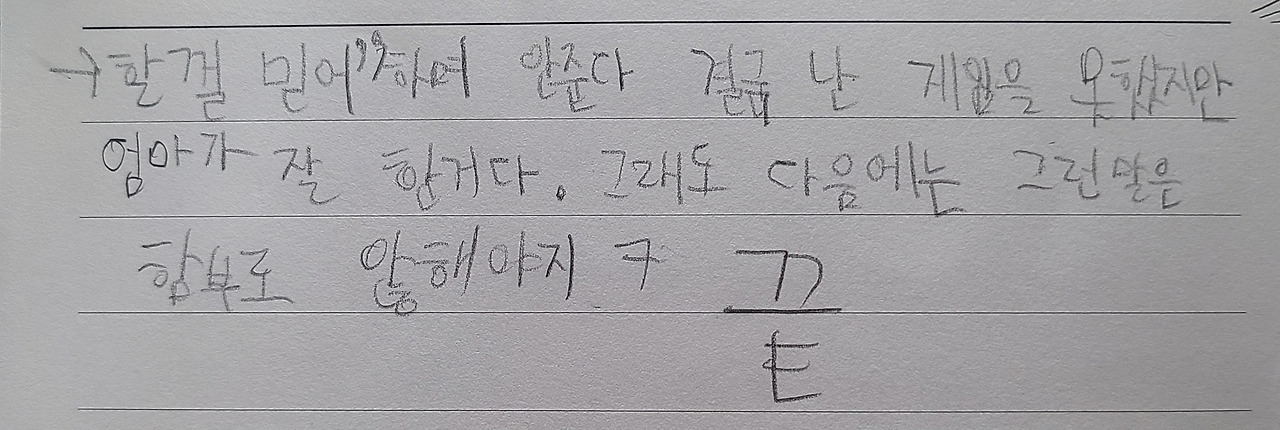 →할껄 믿어”하며 안준다 결국 난 게임을 못했지만
엄마가 잘 한거다. 그래도 다음에는 그런말은
함부로 안해야지 ㅋ ㄲ
ㅌ